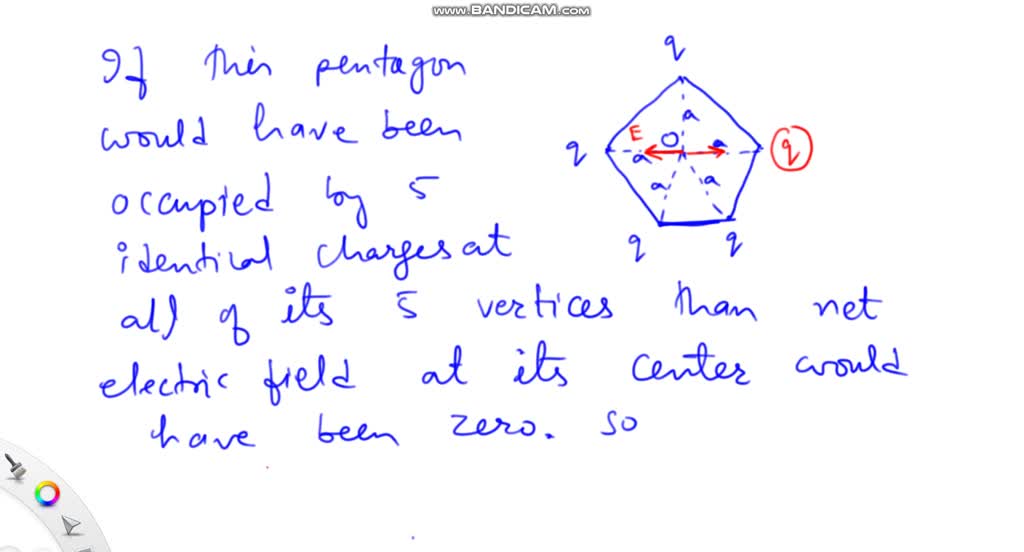 www.BANDICAM.com
If this pentagon
would have been
occupied by 5
identical charges at
all of its 5 vertices than net
electric field at its center would
have been zero. so
q
E
O
a
q
a
a
q
a
a
q
q